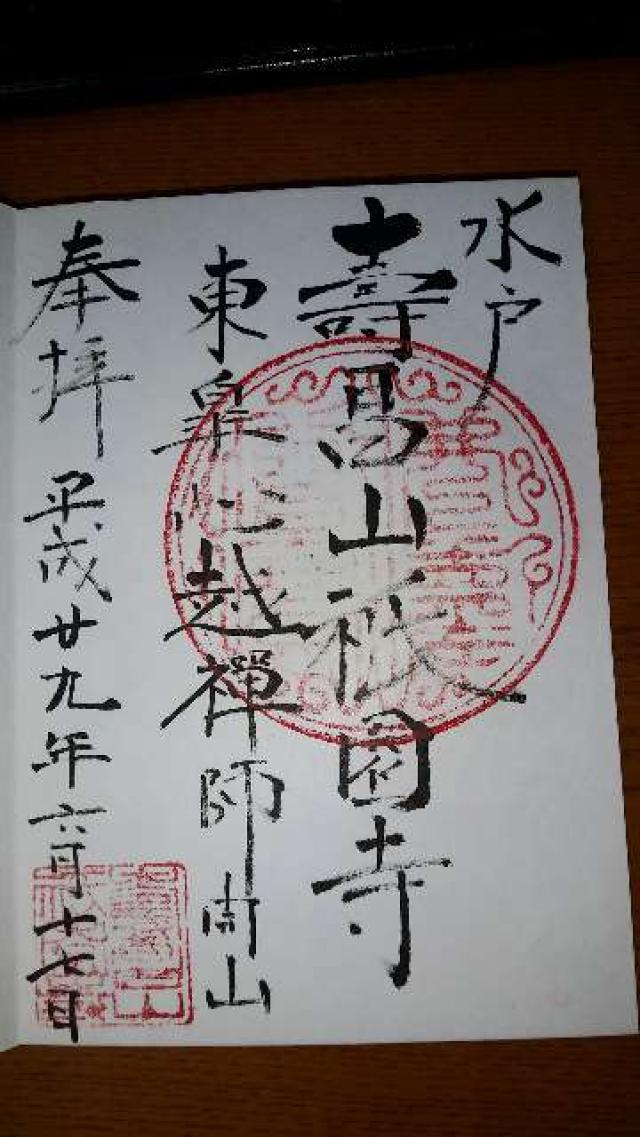 水戸
壽昌山祇園寺
東皐心越禅師開山
奉拝 平成廿九年六月十七日